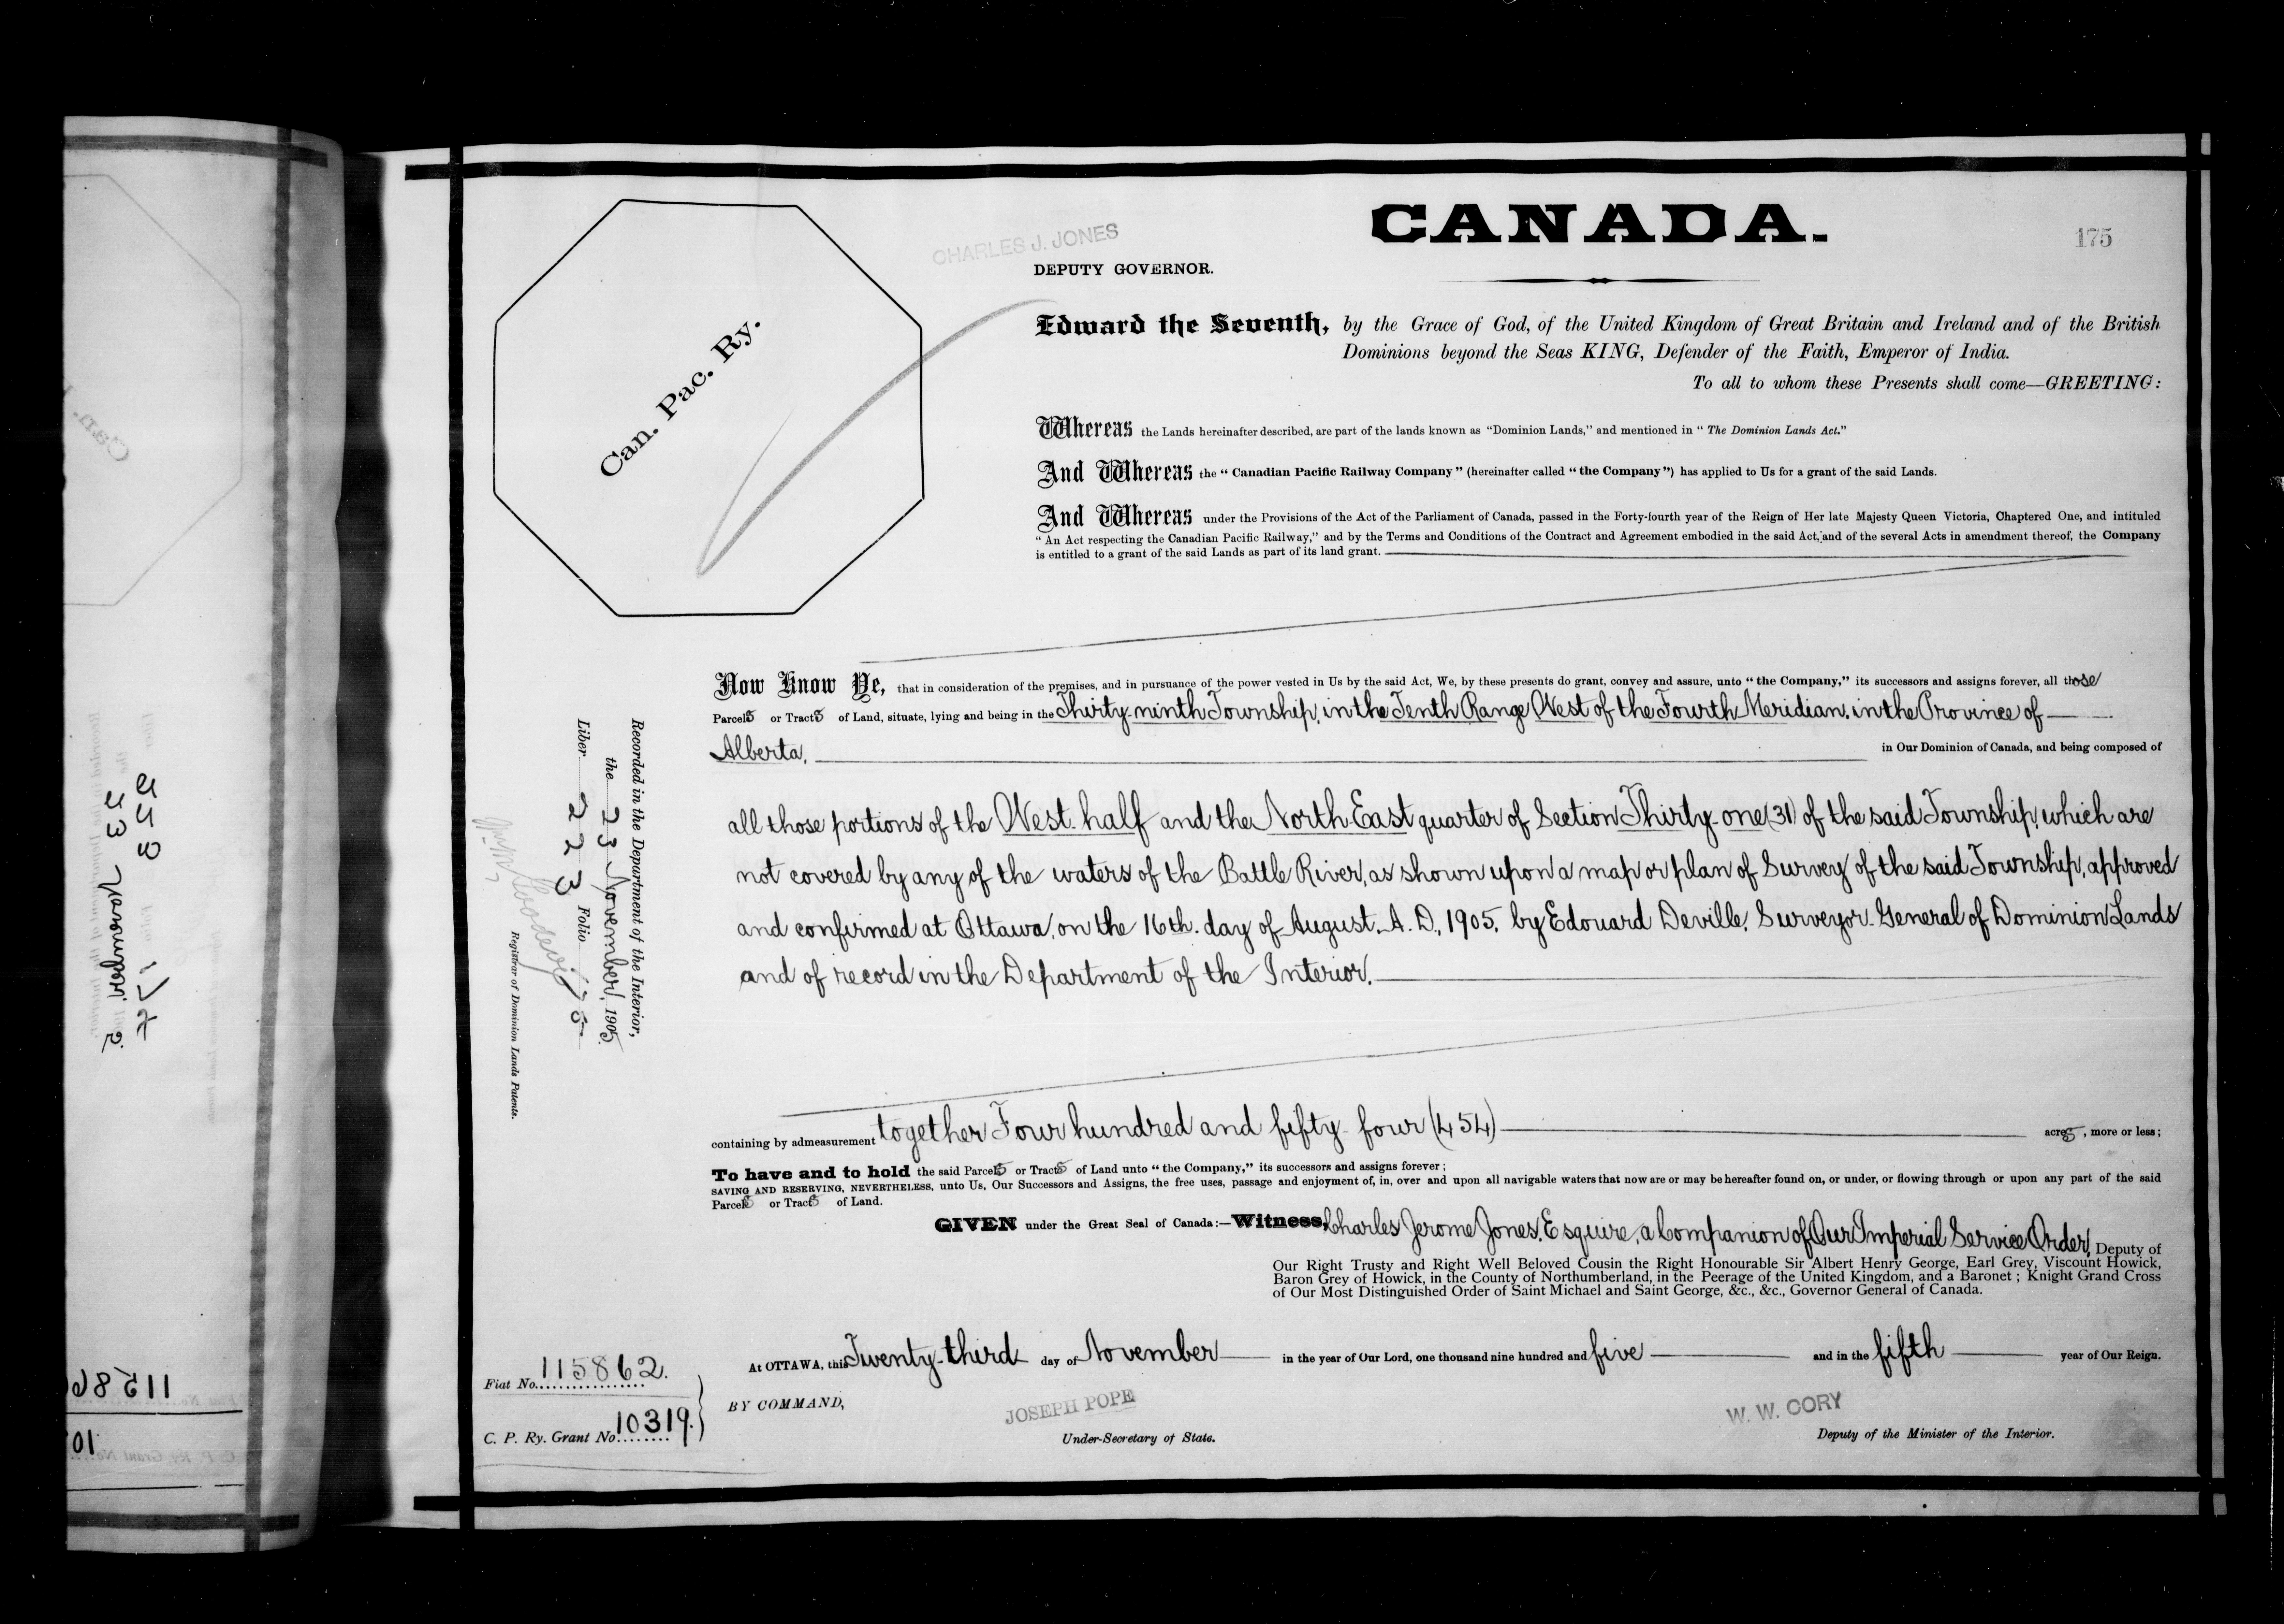 CANADA.
175
CHARLES J. JONES
DEPUTY GOVERNOR.
Can. Pac. Ry.
Edward the Seventh, by the Grace of God, of the United Kingdom of Great Britain and Ireland and of the British
Dominions beyond the Seas KING, Defender of the Faith, Emperor of India.
To all to whom these Presents shall come—GREETING:
Whereas the Lands hereinafter described, are part of the lands known as "Dominion Lands," and mentioned in "The Dominion Lands Act."
And Whereas the "Canadian Pacific Railway Company" (hereinafter called "the Company") has applied to Us for a grant of the said Lands.
And Whereas under the Provisions of the Act of the Parliament of Canada, passed in the Forty-fourth year of the Reign of Her late Majesty Queen Victoria, Chaptered One, and intituled
"An Act respecting the Canadian Pacific Railway," and by the Terms and Conditions of the Contract and Agreement embodied in the said Act, and of the several Acts in amendment thereof, the Company
is entitled to a grant of the said Lands as part of its land grant.
Now Know Ye, that in consideration of the premises, and in pursuance of the power vested in Us by the said Act, We, by these presents do grant, convey and assure, unto "the Company," its successors and assigns forever, all those
Parcels or Tracts of Land, situate, lying and being in the Thirty-ninth Township, in the Tenth Range West of the Fourth Meridian, in the Province of
Alberta, in Our Dominion of Canada, and being composed of
all those portions of the West half and the North East quarter of Section Thirty-one (31) of the said Township, which are
not covered by any of the waters of the Battle River, as shown upon a map or plan of Survey of the said Township, approved
and confirmed at Ottawa, on the 16th. day of August, A.D., 1905, by Edouard Deville, Surveyor General of Dominion Lands
and of record in the Department of the Interior.
containing by admeasurement together Four hundred and fifty-four (454) acres, more or less;
To have and to hold the said Parcels or Tracts of Land unto "the Company," its successors and assigns forever;
SAVING AND RESERVING, NEVERTHELESS, unto Us, Our Successors and Assigns, the free uses, passage and enjoyment of, in, over and upon all navigable waters that now are or may be hereafter found on, or under, or flowing through or upon any part of the said
Parcels or Tracts of Land.
GIVEN under the Great Seal of Canada:—Witness, Charles Jerome Jones, Esquire, a Companion of Our Imperial Service Order, Deputy of
Our Right Trusty and Right Well Beloved Cousin the Right Honourable Sir Albert Henry George, Earl Grey, Viscount Howick,
Baron Grey of Howick, in the County of Northumberland, in the Peerage of the United Kingdom, and a Baronet; Knight Grand Cross
of Our Most Distinguished Order of Saint Michael and Saint George, &c., &c., Governor General of Canada.
At OTTAWA, this Twenty-third day of November in the year of Our Lord, one thousand nine hundred and five and in the fifth year of Our Reign.
BY COMMAND,
JOSEPH POPE
Under-Secretary of State.
W. W. CORY
Deputy of the Minister of the Interior.
Recorded in the Department of the Interior,
the 23 November, 1905.
Liber 223 Folio 175
Registrar of Dominion Lands Patents.
Fiat No. 115862.
C. P. Ry. Grant No. 10319.